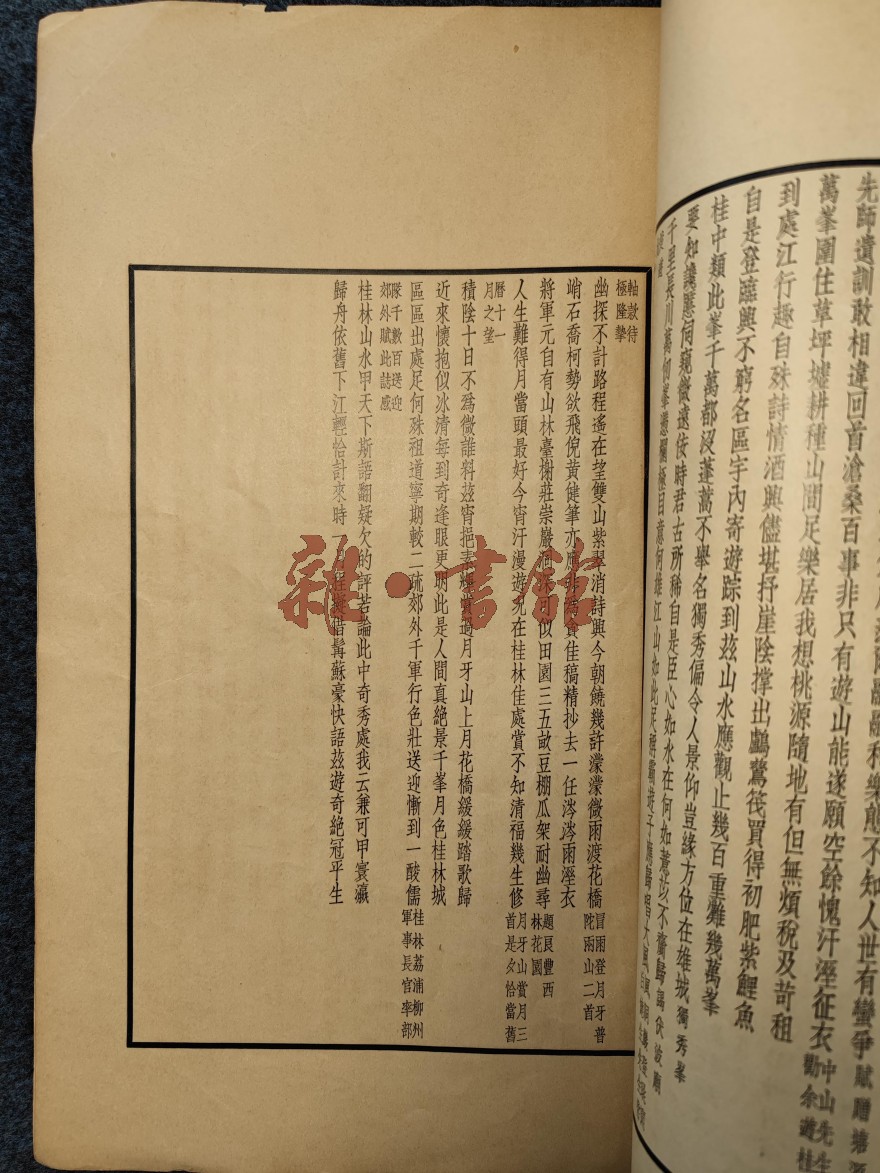 融融和樂態不知人世有蠻爭賦贈塘
先師遺訓敢相違回首滄桑百事非只有遊山能遂願空餘愧汗溼征衣中山先生
勸余遊桂
萬峯圍住草坪墟耕種山間足樂居我想桃源隨地有但無煩稅及苛租
到處江行趣自殊詩情酒興儘堪抒崖陰撐出鸕鶿筏買得初肥紫鯉魚
自是登臨興不窮名區宇內寄遊踪到茲山水應觀止幾百重灘幾萬峯
桂中類此峯千萬都沒蓬蒿不舉名獨秀偏令人景仰豈緣方位在雄城獨秀峯
要知讒慝伺窺微遠依時君古所稀自是臣心如水在何如薏苡不齎歸謁伏波廟
千里長川萬仞峯憑欄極目意何雄江山如此足
軸款待
極隆摯
幽探不計路程遙在望雙山紫翠消詩興今朝饒幾許濛濛微雨渡花橋冒雨登月牙普
陀雨山二首
峭石喬柯勢欲飛倪黃健筆亦應非為貪佳稿精抄去一任涔涔雨溼衣
將軍元自有山林臺榭莊崇巖洞深看似田園三五畝豆棚瓜架耐幽尋題良豐西
林花園
人生難得月當頭最好今宵汗漫遊況在桂林佳處賞不知清福幾生修月牙山賞月三
首是夕恰當舊
曆十一
月之望
積陰十日不為微誰料茲宵挹素輝賞遍月牙山上月花橋緩緩踏歌歸
近來懷抱似冰清每到奇逢眼更明此是人間真絕景千峯月色桂林城
區區出處足何殊祖道寧期較二疏郊外千軍行色壯送迎慚到一酸儒桂林荔浦柳州
軍事長官率部
隊千數百送迎
郊外賦此誌感
桂林山水甲天下斯語翻疑欠的評若論此中奇秀處我云兼可甲寰瀛
歸舟依舊下江輕恰計來時一月程擬借髯蘇豪快語茲遊奇絕冠平生
雜·書館